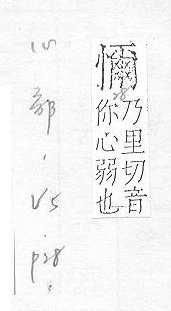 𢣚
乃里切音
你心弱也
心部，V5，p28。